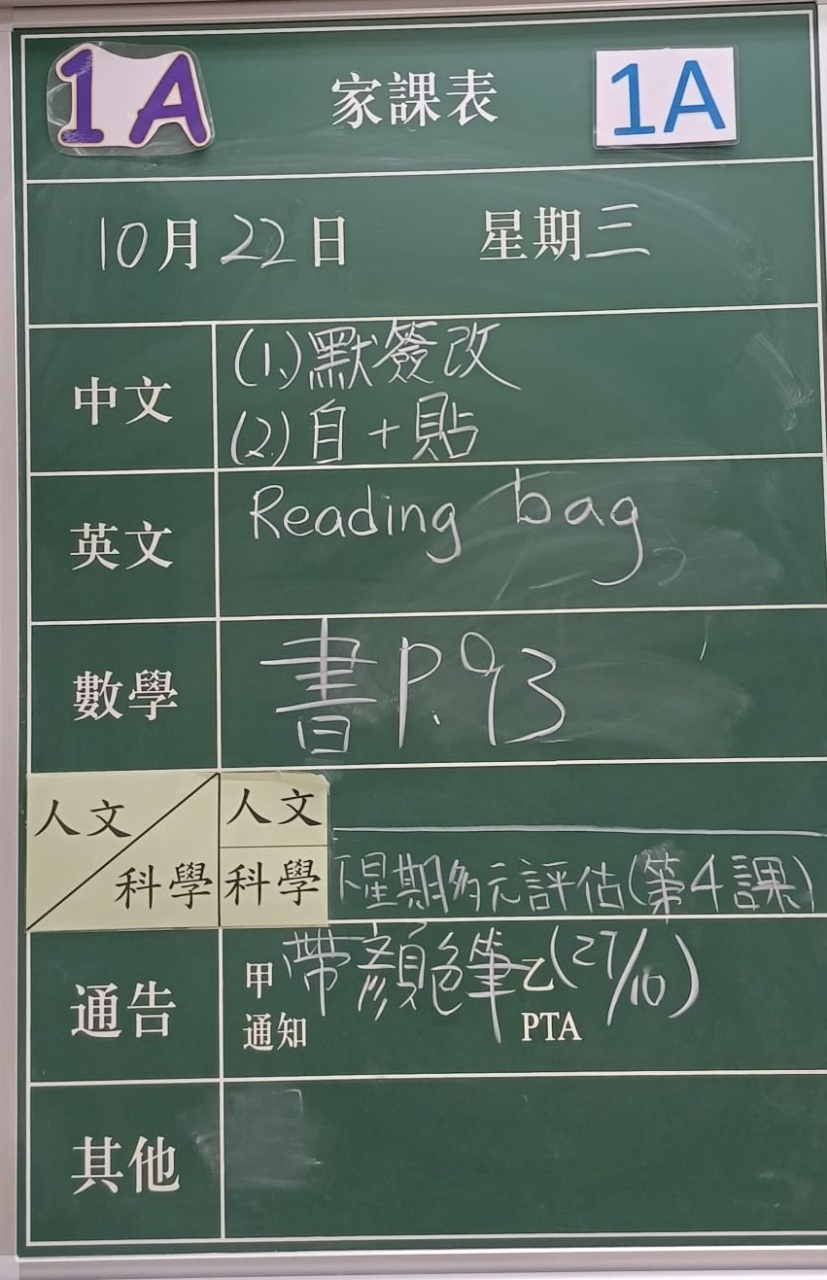 1A 家課表 1A
10月22日 星期三
中文 (1.)默簽改
(2.)自+貼
英文 Reading bag
數學 書P.93
人文/科學 人文
科學 下星期多元評估(第4課)
通告 甲 帶顏色筆 乙(27/10)
通知 PTA
其他